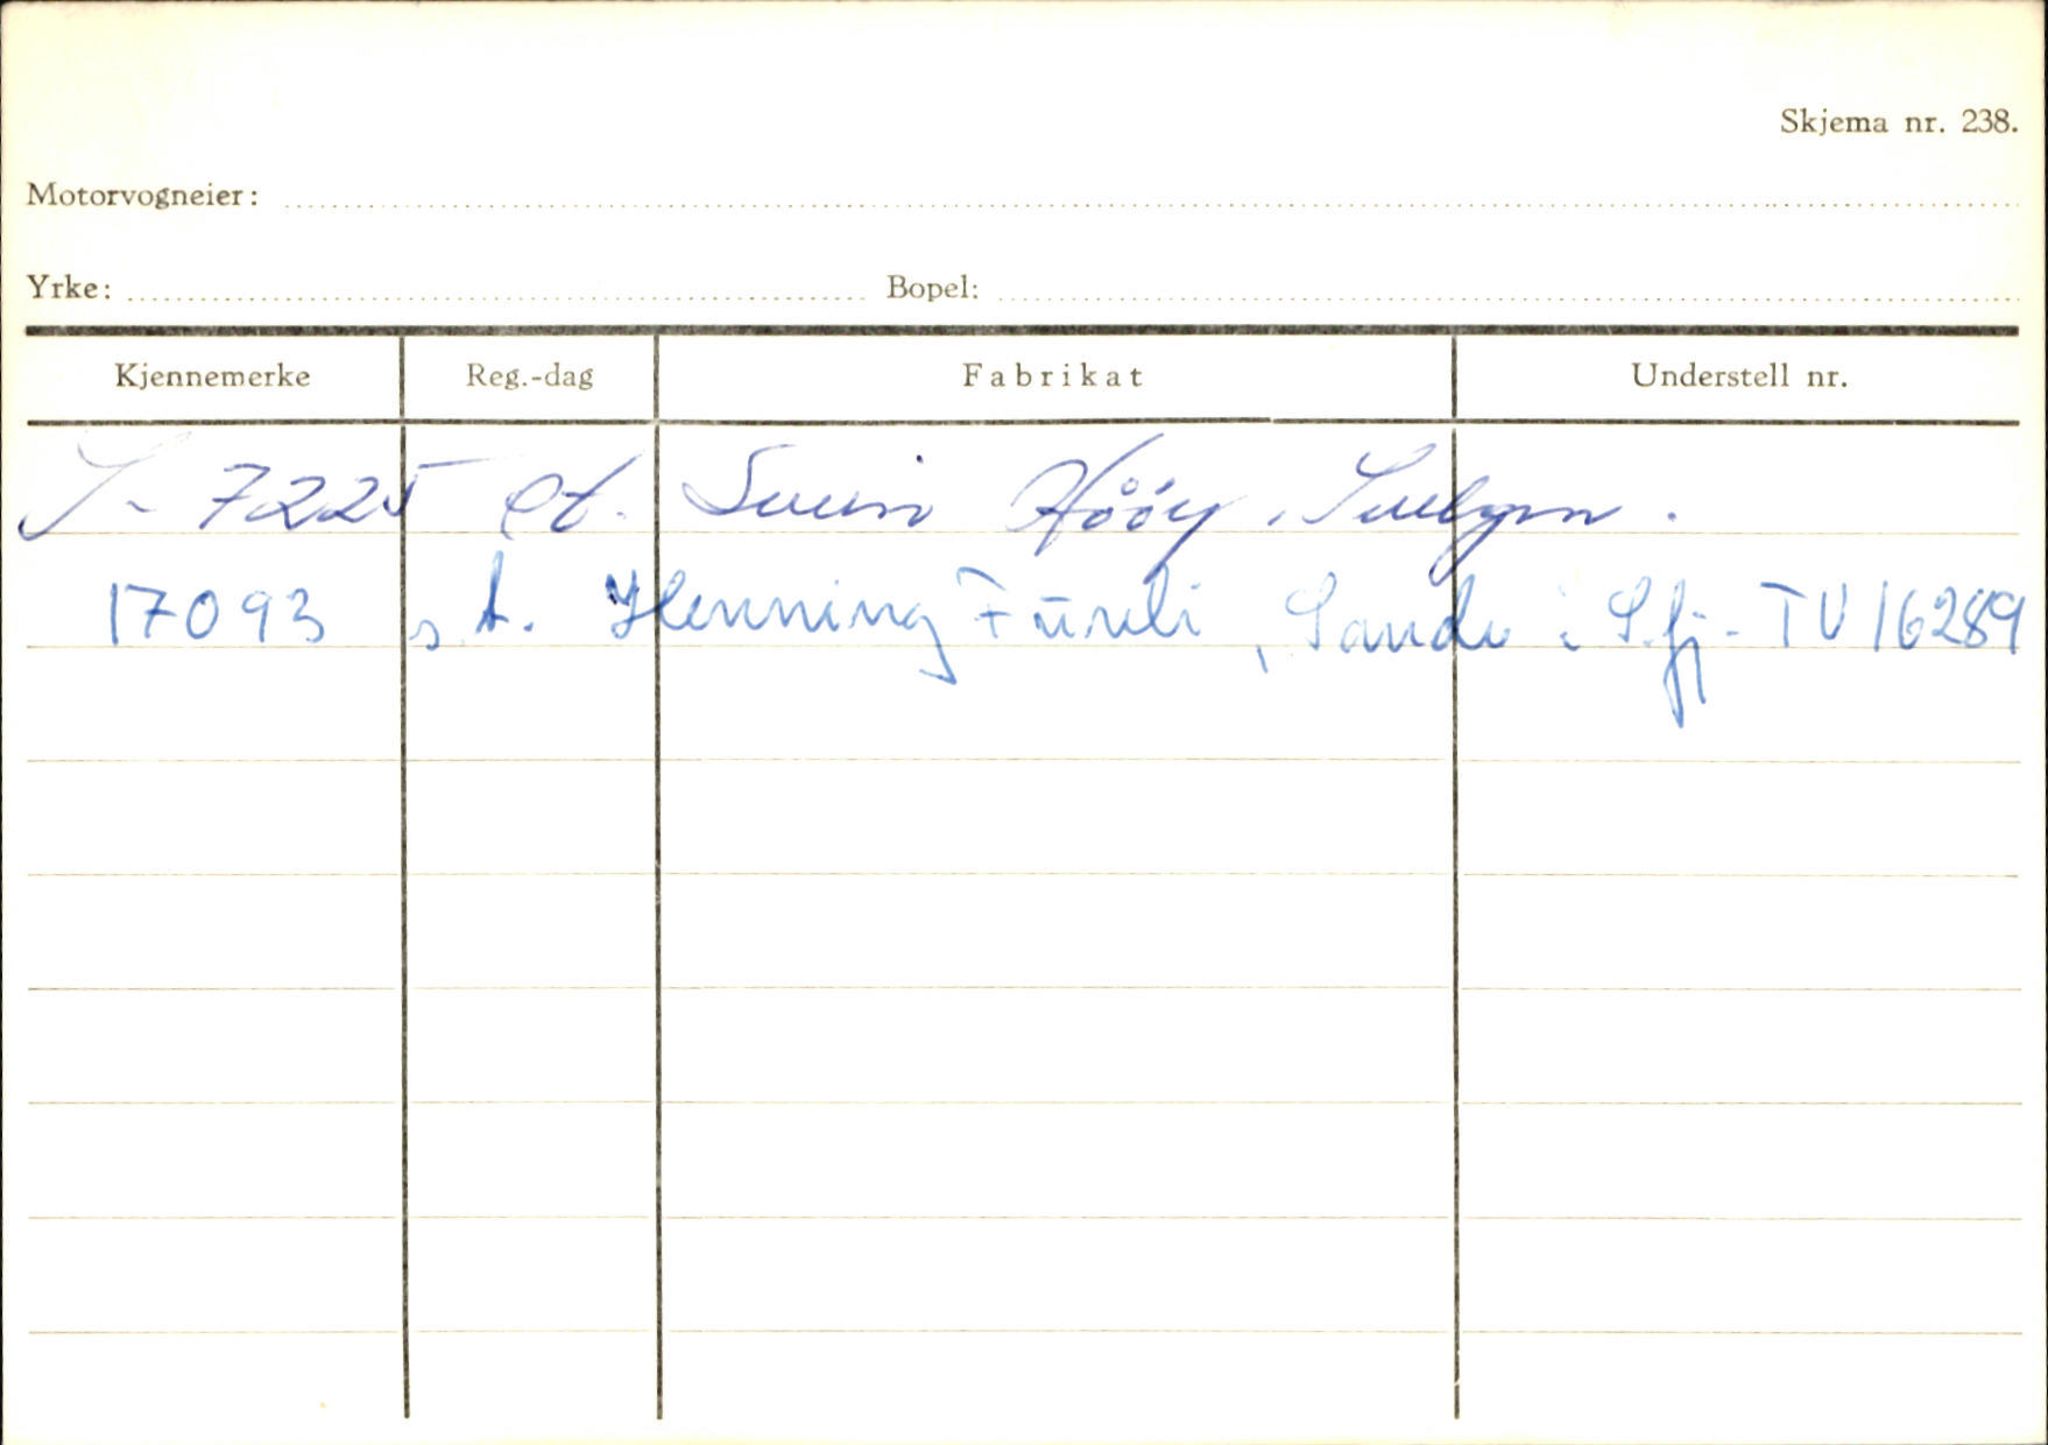 Skjema nr. 238.
Motorvogneier:
Yrke: Bopel:
Kjennemerke Reg.-dag Fabrikat Understell nr.
S-7225 et. Svein Hööy, Selbyn.
17093 s.t. Henning Fürli, Sande i S.fj. - TV 16289